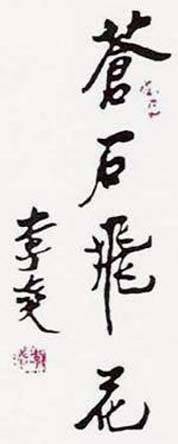 蒼石飛花
李堯